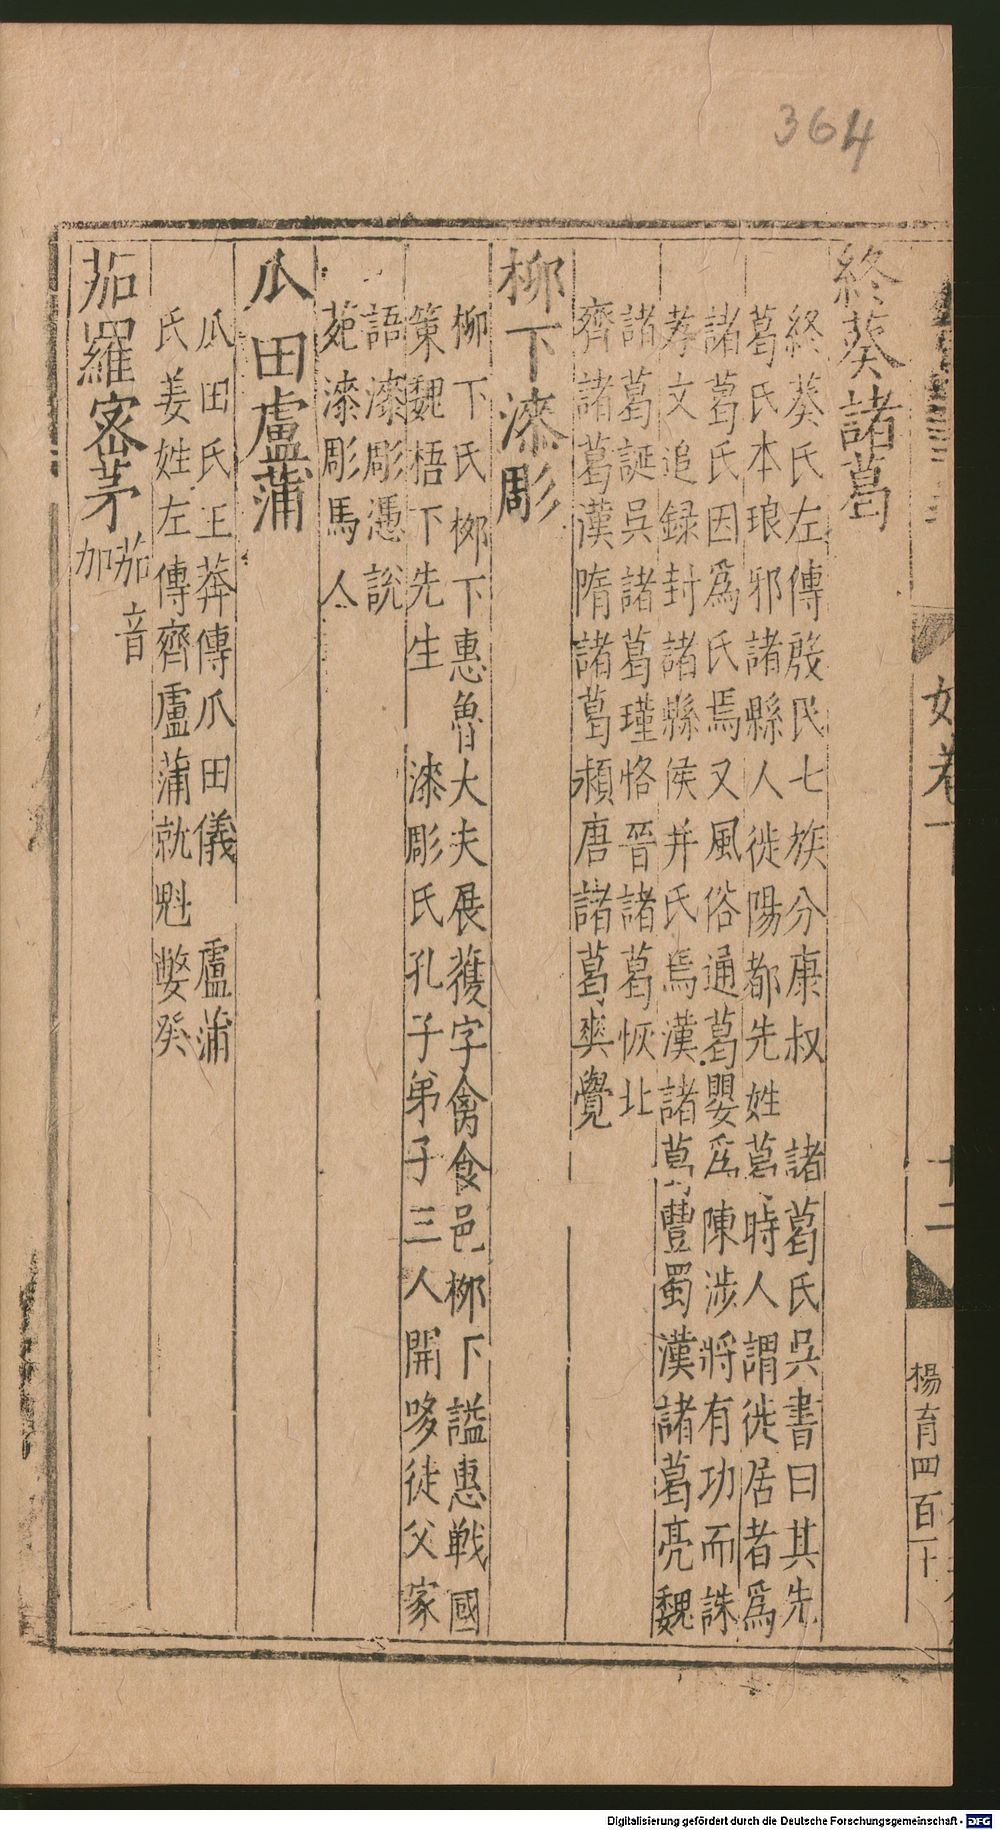 364
終葵諸葛
終葵氏左傳殷民七族分康叔 諸葛氏吳書曰其先
葛氏本琅邪諸縣人徙陽都先姓葛時人謂徙居者為
諸葛氏因為氏焉又風俗通葛嬰為陳涉將有功而誅
孝文追録封諸縣侯并氏焉漢諸葛豐蜀漢諸葛亮魏
諸葛誕吳諸葛瑾恪晉諸葛恢北
齊諸葛漢隋諸葛頴唐諸葛爽覺
柳下漆彫
柳下氏柳下惠魯大夫展獲字禽食邑柳下謚惠戦國
策魏梧下先生 漆彫氏孔子弟子三人開哆徒父家
語漆彫憑說
苑漆彫馬人
瓜田盧蒲
瓜田氏王莽傳爪田儀 盧蒲
氏姜姓左傳齊盧蒲就魁嫳癸
茄羅宻茅
茄音
加
卷一
十二
楊育四百十
Digitalisierung gefördert durch die Deutsche Forschungsgemeinschaft - DFG